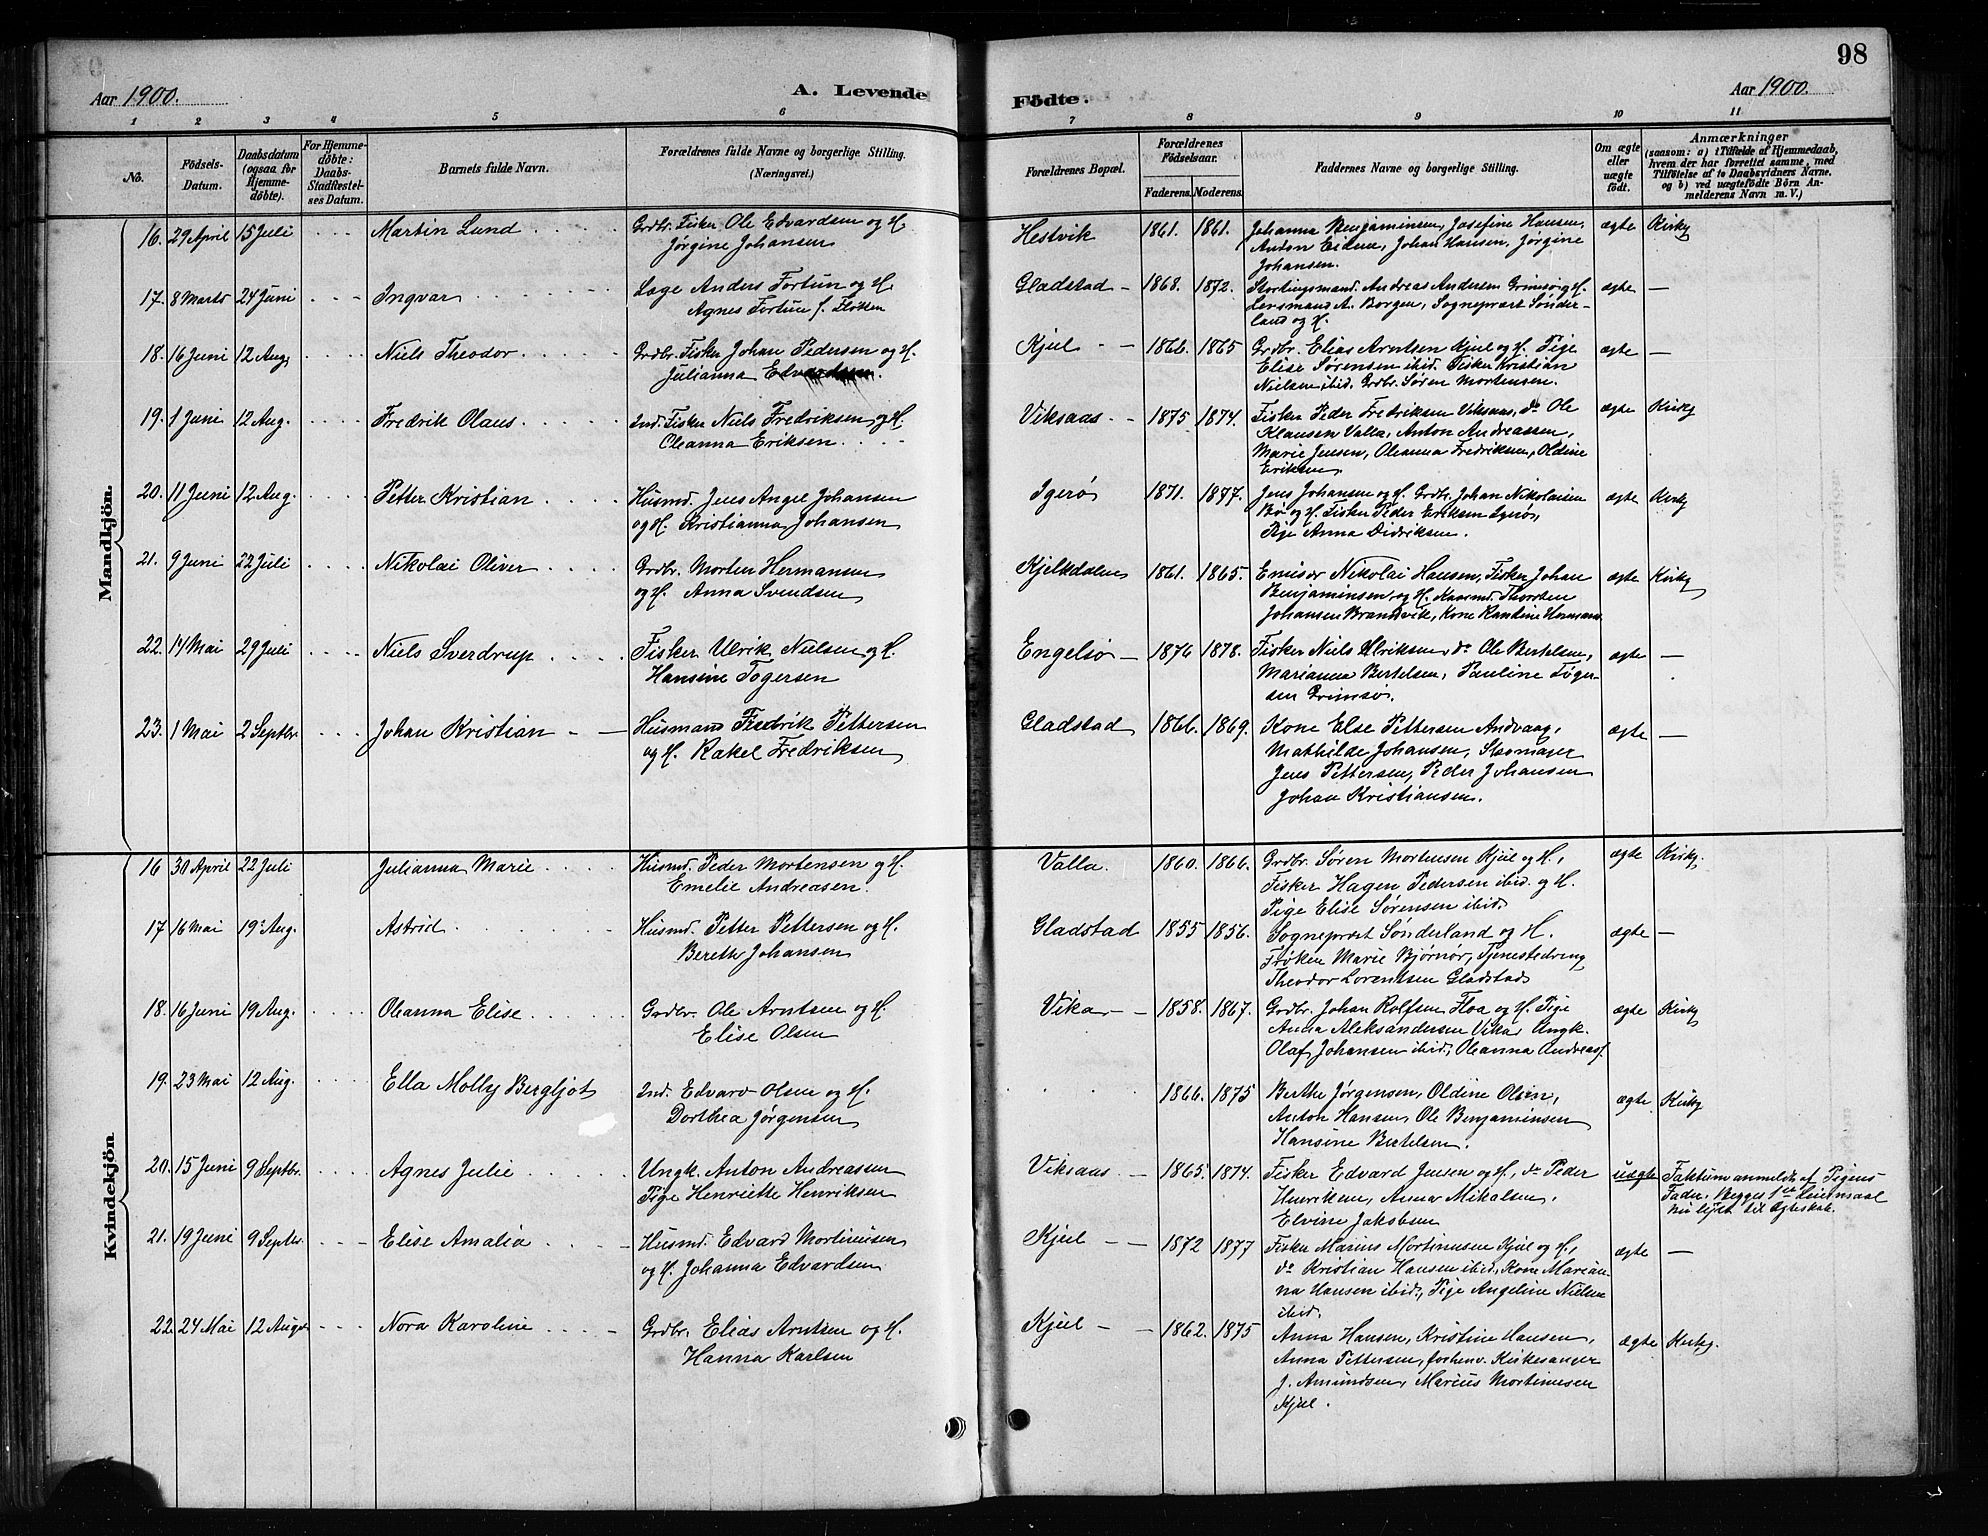 98
Aar 1900.
A. Levende Födte.
Aar 1900.
1 2 3 4 5 6 7 8 9 10 11
No.
Födsels-
Datum.
Daabsdatum
(ogsaa for
Hjemme-
döbte).
For Hjemme-
döbte:
Daabs-
Stadfæstel-
ses Datum.
Barnets fulde Navn.
Forældrenes fulde Navne og borgerlige Stilling.
(Næringsvei.)
Forældrenes Bopæl.
Forældrenes
Födselsaar.
Faderens. Moderens.
Faddernes Navne og borgerlige Stilling.
Om ægte
eller
uægte
født.
Anmærkninger
(saasom: a) i Tilfælde af Hjemmedaab,
hvem der har forrettet samme, med
Tilföielse af to Daabsvidners Navne,
og b) ved uægtefödte Börn An-
melderens Navn m. V.)
Mandkjön.
16. 29 April 15 Juli Martin Lund Grdbr. Fisker Ole Edvardsen og H.
Jørgine Johansen
Hestvik 1861. 1861. Johanna Benjaminsen, Josefine Hansen,
Anton Eidem, Johan Hansen, Jørgine
Johansen.
ægte Kirke
17. 8 Marts 24 Juni Ingvar Læge Anders Fortun og H.
Agnes Fortun f. Floken
Gladstad 1868. 1872. Stortingsmand. Andreas Andersen Grimsø og H.
Lensmand A. Borgen, Sogneprest Sønder-
land og H.
ægte —
18. 16 Juni 12 Aug. Niels Theodor Grdbr. Fisker Johan Pedersen og H.
Julianna Edvardsen.
Kjul 1866. 1865 Grdbr. Elias Arntsen Kjul og H. Pige
Elise Sørensen ibid. Fisker Kristian
Nielsen ibid. Grdbr. Søren Mortensen.
ægte —
19. 1 Juni 12 Aug. Fredrik Olaus Ind. Fisker Niels Fredriksen og H.
Oleanna Eriksen
Viksaas 1875 1874. Fisker Peder Fredriksen Viksaas, do Ole
Klausen Valla, Anton Andreassen,
Marie Jensen, Oleanna Fredriksen, Oldine
Eriksen
ægte Kirke
20. 11 Juni 12 Aug. Petter Kristian Husmd. Jens Angel Johansen
og H. Kristianna Johansen
Igerø 1871. 1877. Jens Johansen og H. Grdbr. Johan Nikolaisen
Bø og H. Fisker Peder Eriksen Igerø,
Pige Anna Didriksen.
ægte Kirke
21. 9 Juni 22 Juli Nikolai Oliver Grdbr. Morten Hermansen
og H. Anna Svendsen
Kjelkdalen 1861. 1865. Emisær Nikolai Hansen, Fisker Johan
Benjaminsen og H. Thorsten
Johansen Brandvik, Kone
ægte Kirke
22. 14 Mai 29 Juli Niels Sverdrup Fisker Ulrik Nielsen og H.
Hansine Togersen
Engelsø 1876 1878. Fisker Niels Ulriksen, do Ole Bertelsen,
Marianna Bertelsen, Pauline Toger-
sen Grimsø.
ægte —
23. 1 Mai 2 Septbr. Johan Kristian Husmand Fredrik Pettersen
og H. Rakel Fredriksen
Gladstad 1866. 1869. Kone Else Pettersen Andvaag,
Mathilde Johansen, Skomager
Jens Pettersen, Peder Johansen
Johan Kristiansen.
ægte —
Kvindekjön.
16 30 April 22 Juli Julianna Marie Husmd. Peder Mortensen og H.
Emelie Andreasen.
Valla. 1860. 1866. Grdbr. Søren Mortensen Kjul og H.,
Fisker Hagen Pedersen ibid. og H.
Pige Elise Sørensen ibid.
ægte Kirke.
17 16 Mai 19 Aug. Astrid Husmd. Petter Pettersen og H.
Berethe Johansen
Gladstad 1855 1856. Sogneprest Sønderland og H.
Frøken Marie Bjørnør, Tjenestedreng
Theodor Lorentsen Gladstad
ægte —
18. 16 Juni 19 Aug. Oleanna Elise Grdbr. Ole Arntsen og H.
Elise Olsen
Vika 1858. 1867. Grdbr. Johan Rolfsen Floa og H. Pige
Anna Aleksandersen Vika, Ungk.
Olaf Johansen ibid., Oleanna Andreas.
ægte Kirke
19. 23 Mai 12 Aug. Ella Molly Bergljot Ind. Edvard Olsen og H.
Dorthea Jørgensen
1866. 1875 Berthe Jørgensen, Oldine Olsen,
Anton Hansen, Ole Benjaminsen
Hansine Bertelsen.
ægte Kirke
20. 15 Juni 9 Septbr. Agnes Julie Ungk. Anton Andreassen
Pige Henriette Henriksen
Viksaas 1865. 1874. Fisker Edvard Jensen og H., do Peder
Henriksen, Anna Mikalsen,
Elvine Jakobsen
uægte Faktum anmeldt af Pigens
Fader. Begges 1ste Leiermaal
Nu lyst til Ægteskab.
21. 19 Juni 9 Septbr. Elise Amalia Husmd. Edvard Mortinusen
og H. Johanna Edvardsen
Kjul 1872 1877 Fisker Marius Mortinusen Kjul og H.,
do Kristian Hansen ibid., Kone Marian-
na Hansen ibid., Pige Angeline Nielsen
ibid.
ægte —
22. 24 Mai 12 Aug. Nora Karoline Grdbr. Elias Arntsen og H.
Hanna Karlsen
Kjul 1862. 1875 Anna Hansen, Kristine Hansen,
Anna Pettersen, forhenv. Kirkesanger
J. Amundsen, Marius Mortinusen
Kjul.
ægte Kirke.